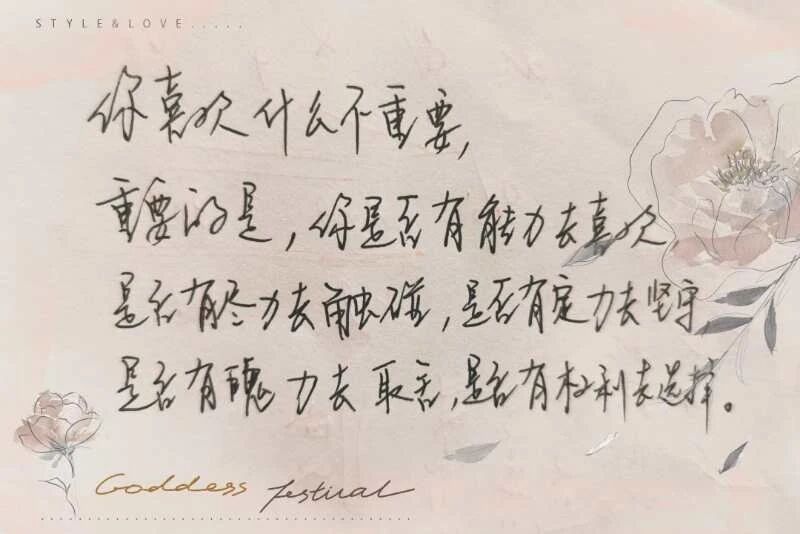 STYLE&LOVE.....
你喜欢什么不重要，
重要的是，你是否有能力去喜欢，
是否有尽力去触碰，是否有定力去坚守
是否有魄力去取舍，是否有权利去选择。
Goddess festival